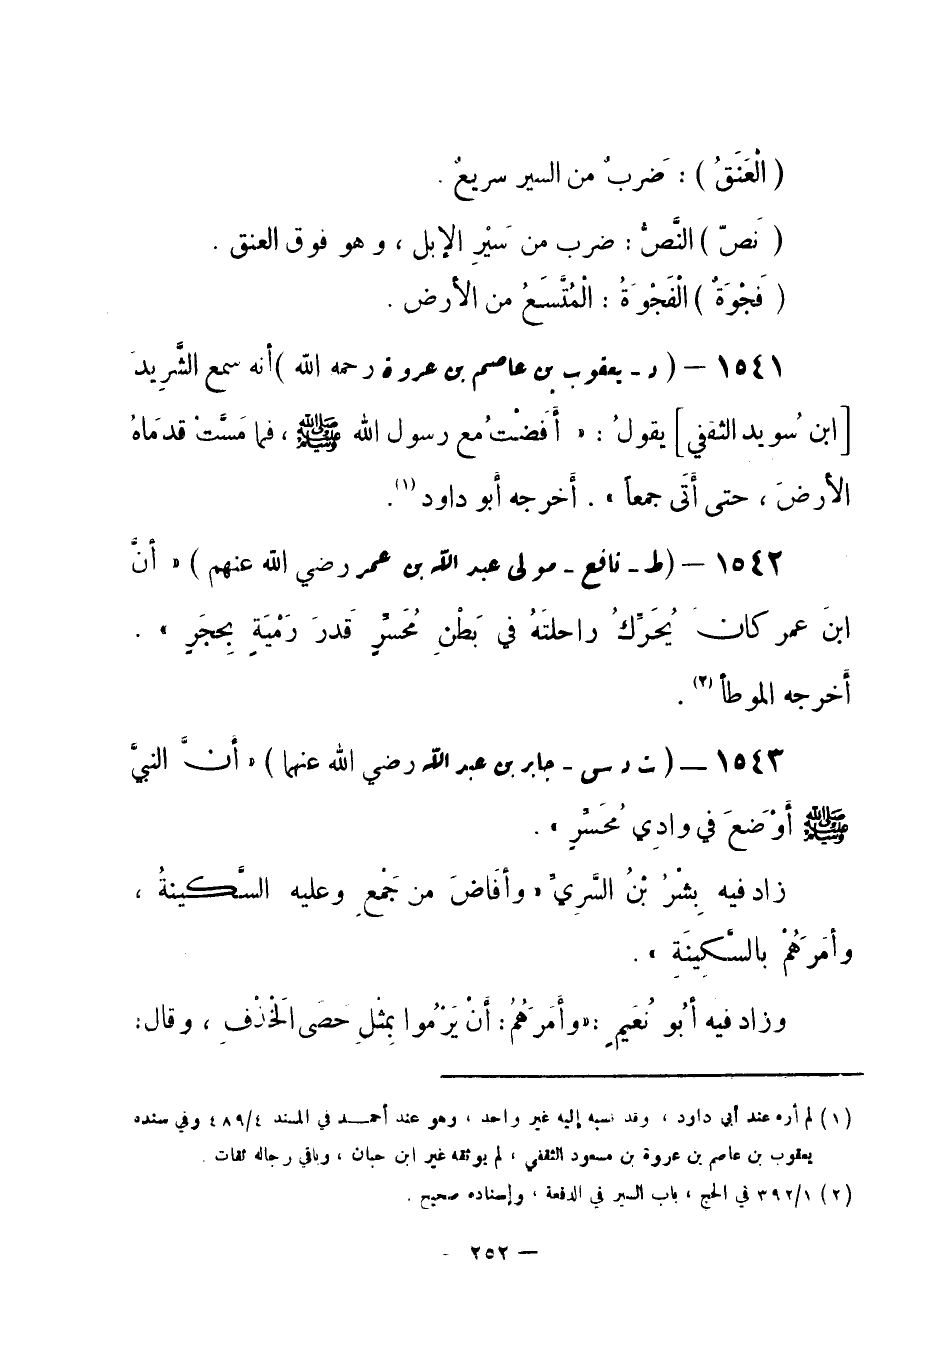 ( الْعَنَقُ ) : ضَربٌ من السير سريعٌ .
( نَصّ ) النَّصُّ : ضرب من سَيْرِ الإبل ، و هو فوق العنق .
( فَجْوَةٌ ) الْفَجْوَةُ : الْمُتَّسَعُ من الأرض .
١٥٤١ — ( د - يعقوب بن عاصم بن عروة رحمه الله ) أنه سمع الشَّرِيدَ
[ ابن سُويد الثقفي ] يقولُ : « أَفَضْتُ مع رسول الله ﷺ ، فما مَسَّتْ قدمَاهُ
الأرضَ ، حتى أَتَى جمعاً » . أخرجه أبو داود (١).
١٥٤٢ — ( ط - نافع - مولى عبد الله بن عمر رضي الله عنهم ) « أنَّ
ابنَ عمر كان يُحَرِّكُ راحلتَهُ في بَطْنِ مُحَسِّرٍ قَدرَ رَمْيَةٍ بِحجَرٍ » .
أخرجه الموطأ (٢) .
١٥٤٣ — ( ت د س - جابر بن عبد الله رضي الله عنهما ) « أنَّ النبيَّ
ﷺ أَوْضَعَ في وادِي مُحَسِّرٍ » .
زاد فيه بِشْرُ بْنُ السَّرِيِّ « وأفَاضَ من جَمْعٍ وعليه السَّكينةُ ،
وأمَرَهُمْ بالسَّكِينَةِ » .
وزاد فيه أبُو نُعَيمٍ : « وأمَرَهُمُ : أَنْ يَرْمُوا بِمثْلِ حَصَى الْخَذْفِ ، وقال :
(١) لم أره عند أبي داود ، وقد نسبه إليه غير واحد ، وهو عند أحمد في المسند ٤٨٩/٤ وفي سنده
يعقوب بن عاصم بن عروة بن مسعود الثقفي ، لم يوثقه غير ابن حبان ، وباقي رجاله ثقات .
(٢) ٣٩٢/١ في الحج ، باب السير في الدفعة ، وإسناده صحيح .
— ٢٥٢ -